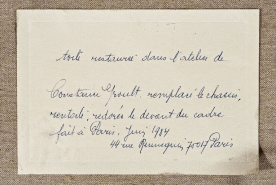 toile restaurée dans l'atelier de
Constance Groult, remplacé le chassis,
rentoilé, redorés le devant du cadre
fait à Paris, Juin 1984
44 rue 75017 Paris